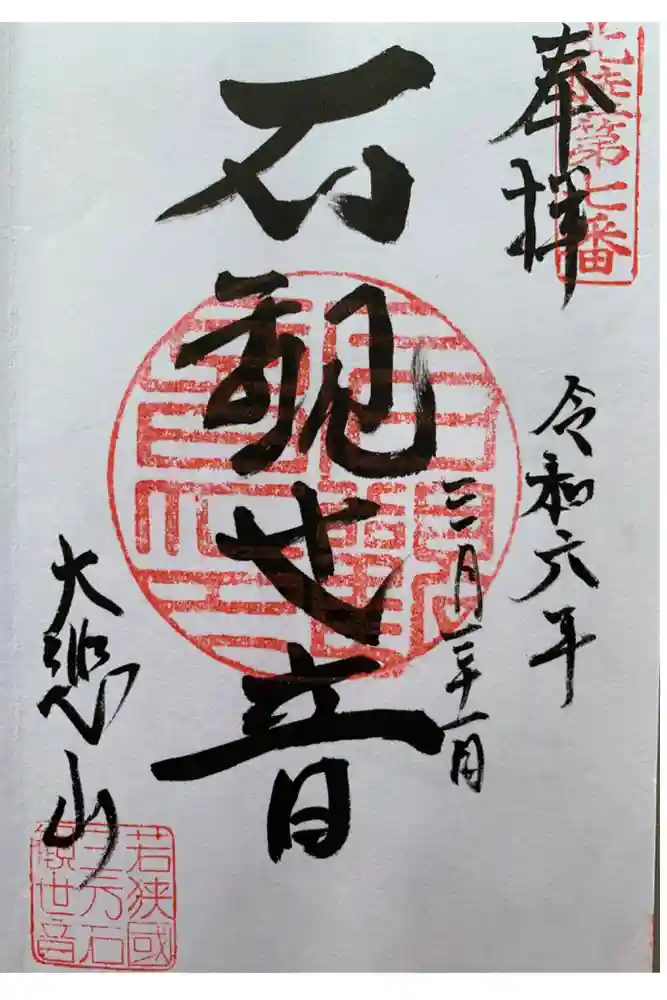 奉拝
北陸第七番
令和六年
三月三十一日
石観世音
大悲山
若狭國
三方石
觀世音